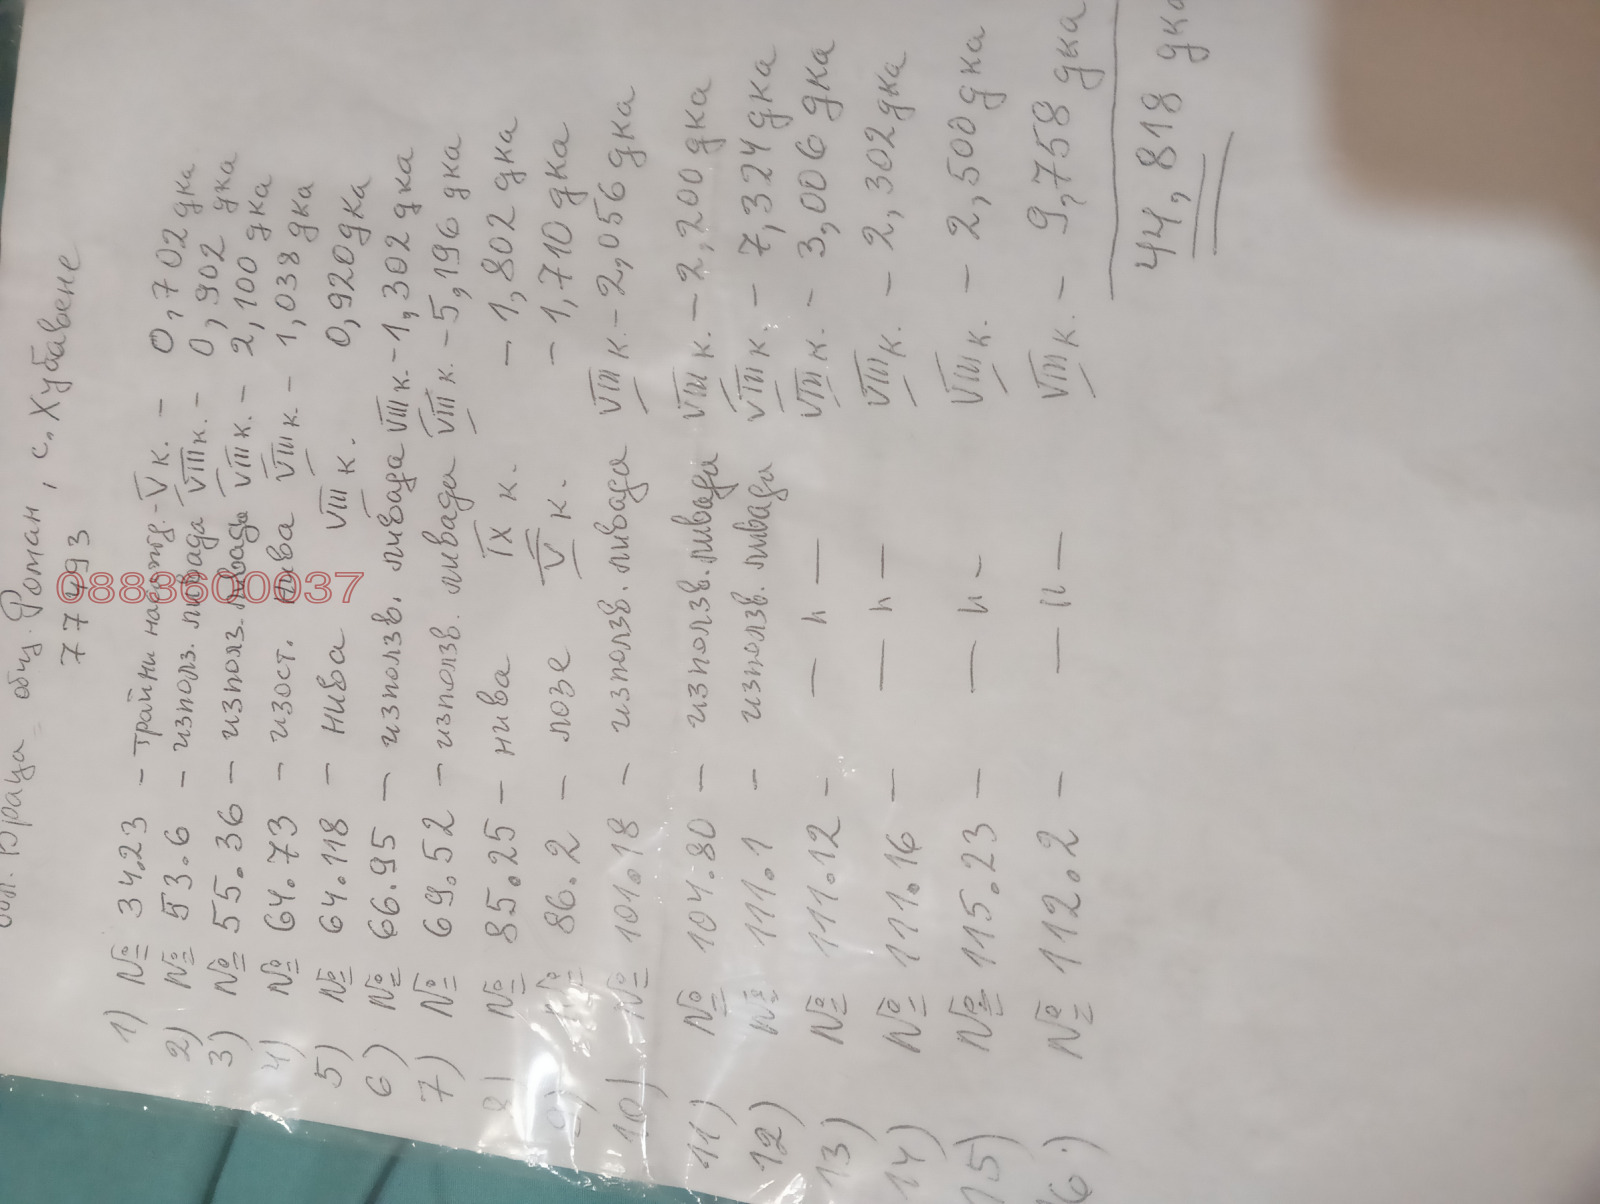 обл. Враца, общ. Роман, с. Хубавене
77493
1) № 34.23 - трайни насажд. - V к. - 0,702 дка
2) № 53.6 - използ. ливада VIII к. - 0,902 дка
3) № 55.36 - използ. ливада VIII к. - 2,100 дка
4) № 64.73 - изост. нива VIII к. - 1,038 дка
5) № 64.118 - нива VIII к. 0,920 дка
6) № 66.95 - използв. ливада VIII к. - 1,302 дка
7) № 69.52 - използв. ливада VIII к. - 5,196 дка
8) № 85.25 - нива IX к. - 1,802 дка
9) № 86.2 - лозе V к. - 1,710 дка
10) № 101.18 - използв. ливада VIII к. - 2,056 дка
11) № 104.80 - използв. ливада VIII к. - 2,200 дка
12) № 111.1 - използв. ливада VIII к. - 7,324 дка
13) № 111.12 - — " — VIII к. - 3,006 дка
14) № 111.16 - — " — VIII к. - 2,302 дка
15) № 115.23 - — " — VIII к. - 2,500 дка
16) № 112.2 - — " — VIII к. - 9,758 дка
44,818 дка
0883600037